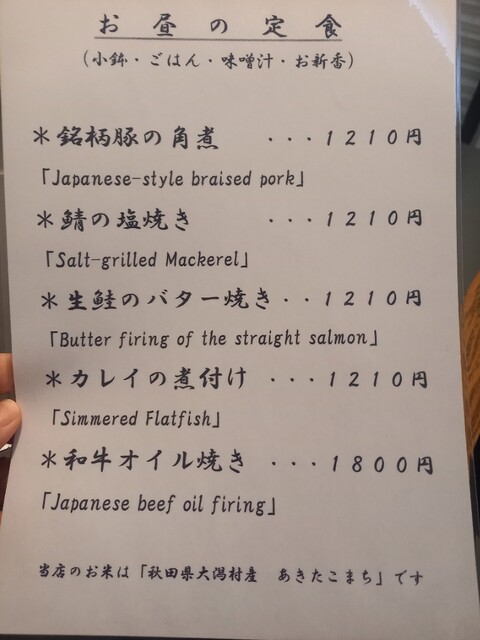 お昼の定食
（小鉢・ごはん・味噌汁・お新香）
＊銘柄豚の角煮 ・・・１２１０円
「Japanese-style braised pork」
＊鯖の塩焼き ・・・１２１０円
「Salt-grilled Mackerel」
＊生鮭のバター焼き・・１２１０円
「Butter firing of the straight salmon」
＊カレイの煮付け ・・・１２１０円
「Simmered Flatfish」
＊和牛オイル焼き ・・・１８００円
「Japanese beef oil firing」
当店のお米は「秋田県大潟村産　あきたこまち」です